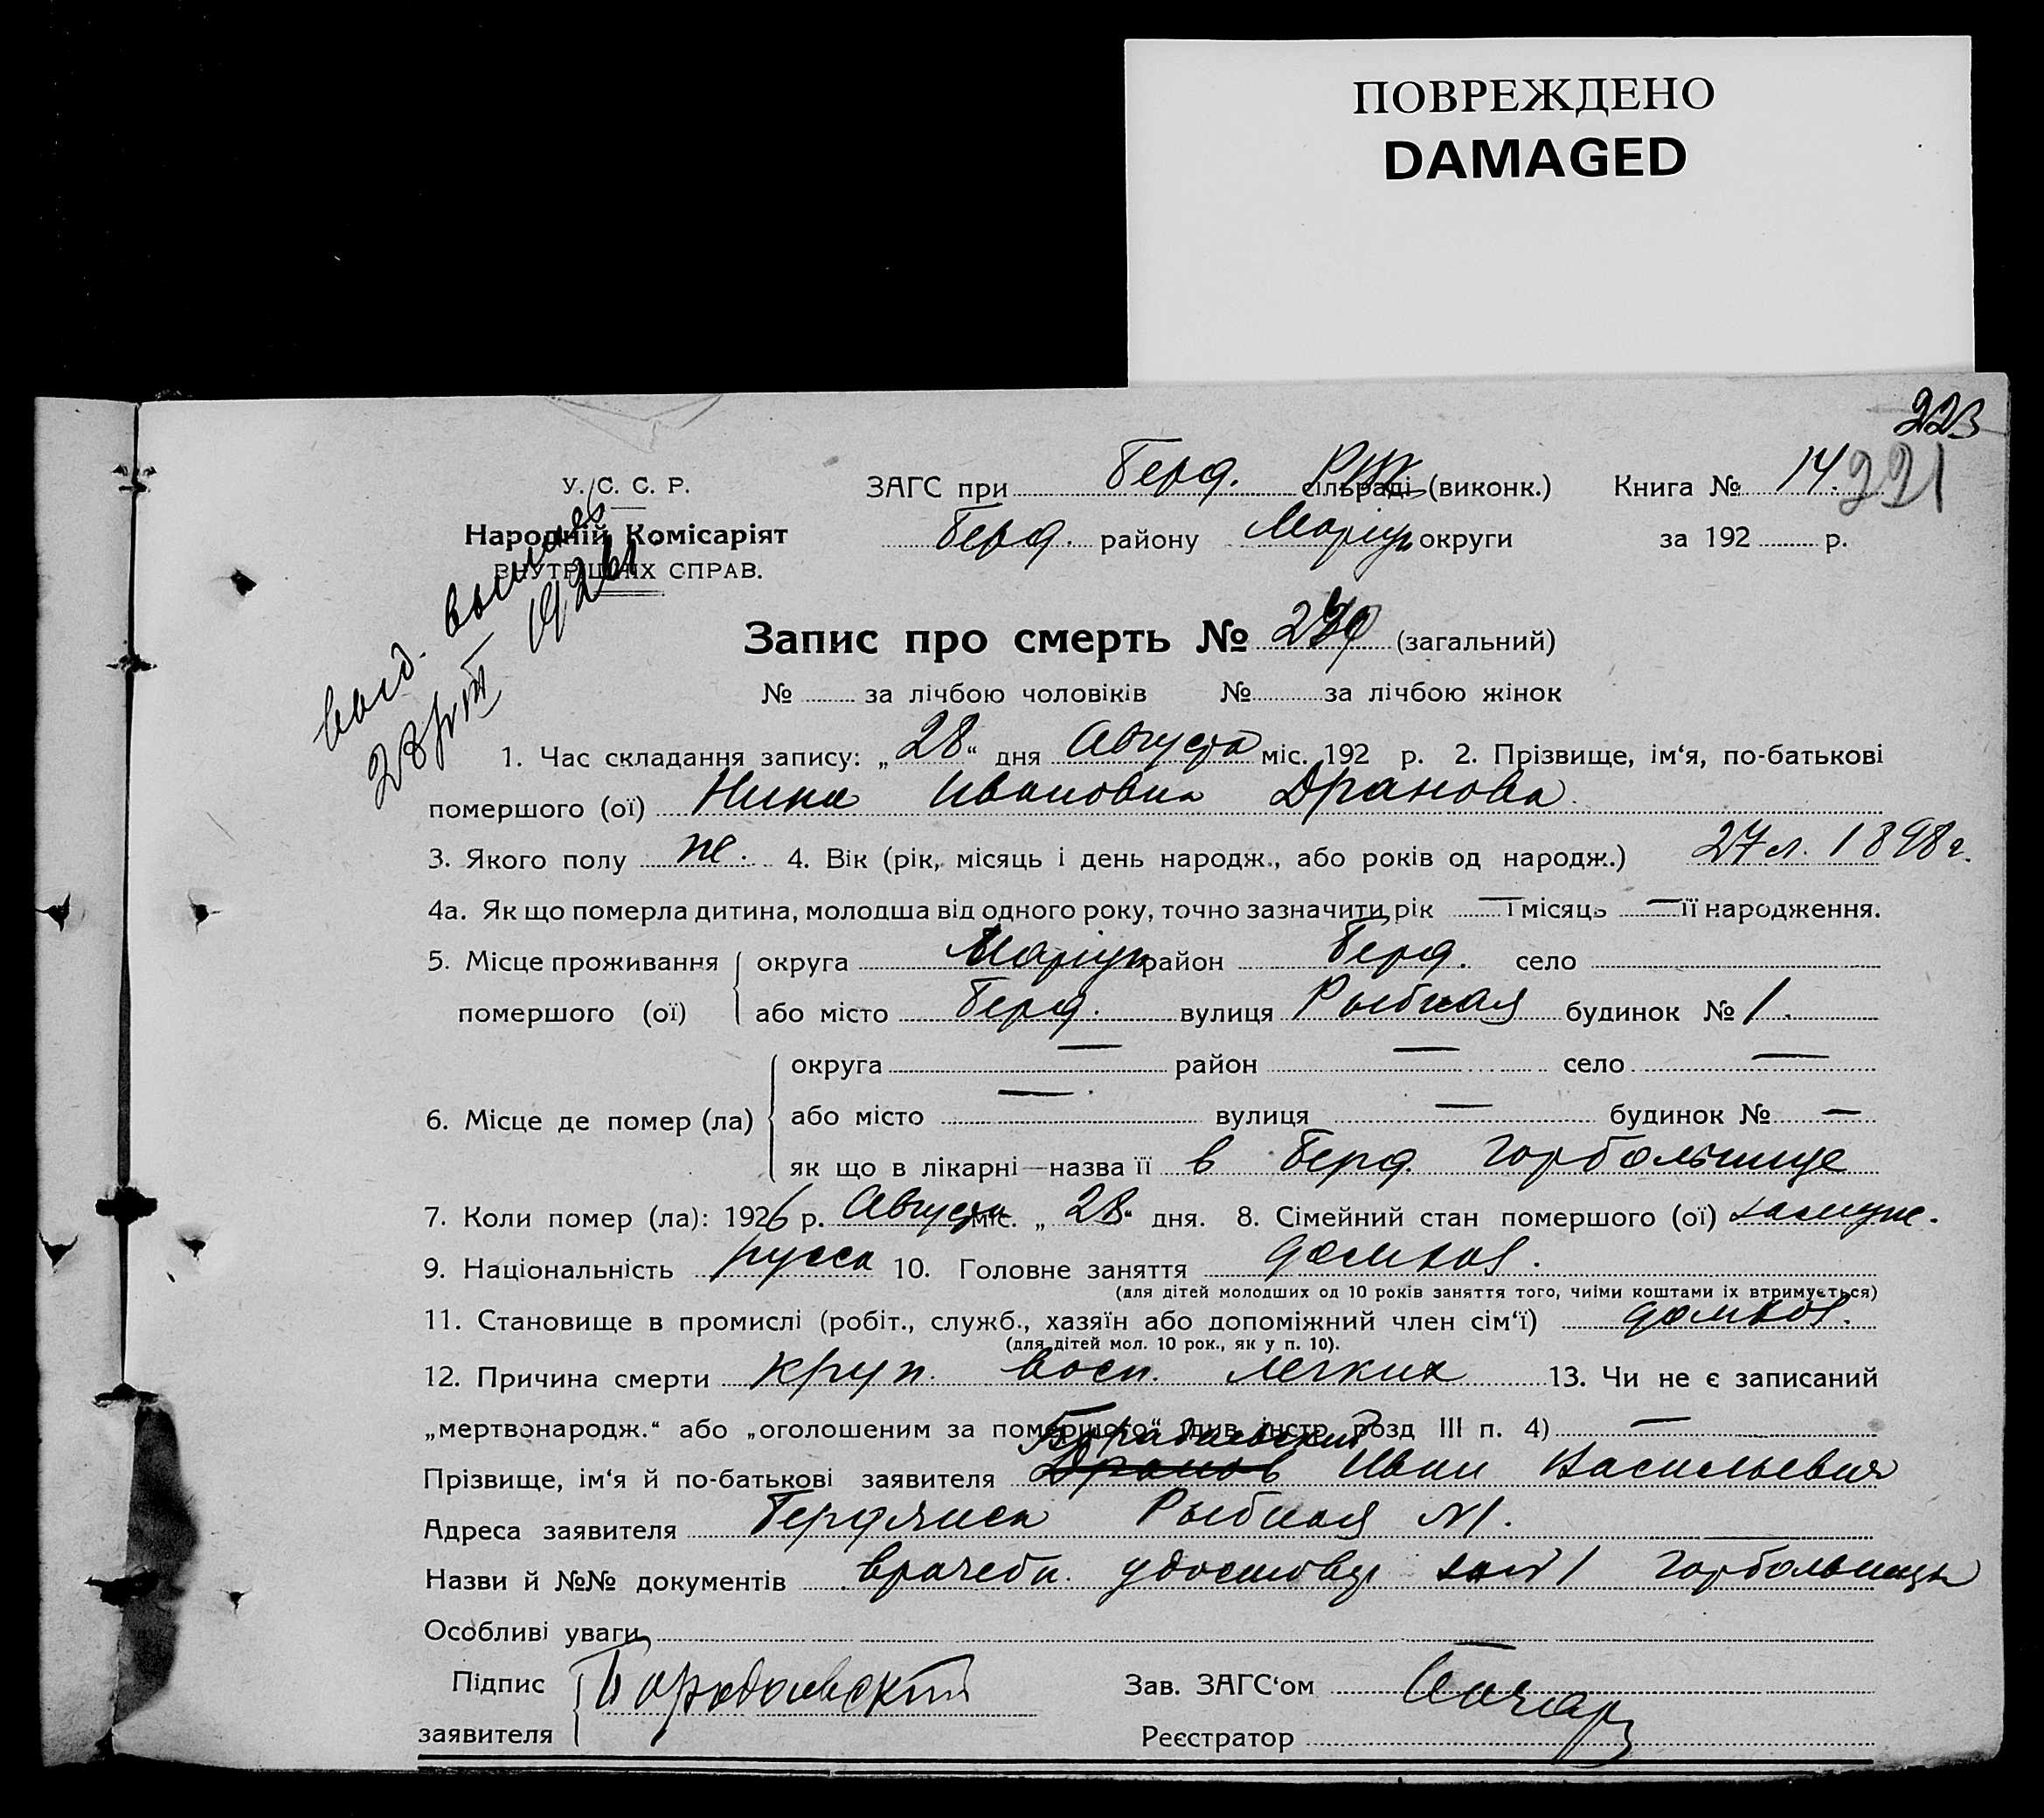 ПОВРЕЖДЕНО
DAMAGED
223
221
У. С. С. Р.
Народній Комісаріят
ВНУТРІШНІХ СПРАВ.
ЗАГС при Берд. РИК сільраді (виконк.) Книга № 14.
Берд. району Маріуп округи за 192 р.
выд. выпись
28/VIII 1926
Запис про смерть № (загальний)
№ за лічбою чоловіків № за лічбою жінок
1. Час складання запису: „28“ дня Августа міс. 192 р. 2. Прізвище, ім‘я, по-батькові
помершого (ої) Нина Ивановна Дранова
3. Якого полу же. 4. Вік (рік, місяць і день народж., або років од народж.) 27 л. 1898 г.
4а. Як що померла дитина, молодша від одного року, точно зазначити рік — і місяць — її народження.
5. Місце проживання помершого (ої) округа Маріуп район Берд. село
або місто Берд. вулиця Рыбная будинок № 1.
6. Місце де помер (ла) округа — район — село —
або місто — вулиця — будинок № —
як що в лікарні—назва її в Берд. горбольнице
7. Коли помер (ла): 1926 р. Августа міс. „28“ дня. 8. Сімейний стан помершого (ої) замуж.
9. Національність русск 10. Головне заняття домхоз.
(для дітей молодших од 10 років заняття того, чиїми коштами їх втримується)
11. Становище в промислі (робіт., служб., хазяїн або допоміжний член сім‘ї) домхоз.
(для дітей мол. 10 рок., як у п. 10).
12. Причина смерти круп. восп. легких 13. Чи не є записаний
„мертвонародж.“ або „оголошеним за помершого“ (див. інстр. розд III п. 4) —
Прізвище, ім‘я й по-батькові заявителя Дранов Иван Васильевич
Адреса заявителя Бердянск Рыбная №1.
Назви й №№ документів врачебн. удостовер 1 горбольницы
Особливі уваги —
Підпис заявителя Зав. ЗАГС‘ом
Реєстратор